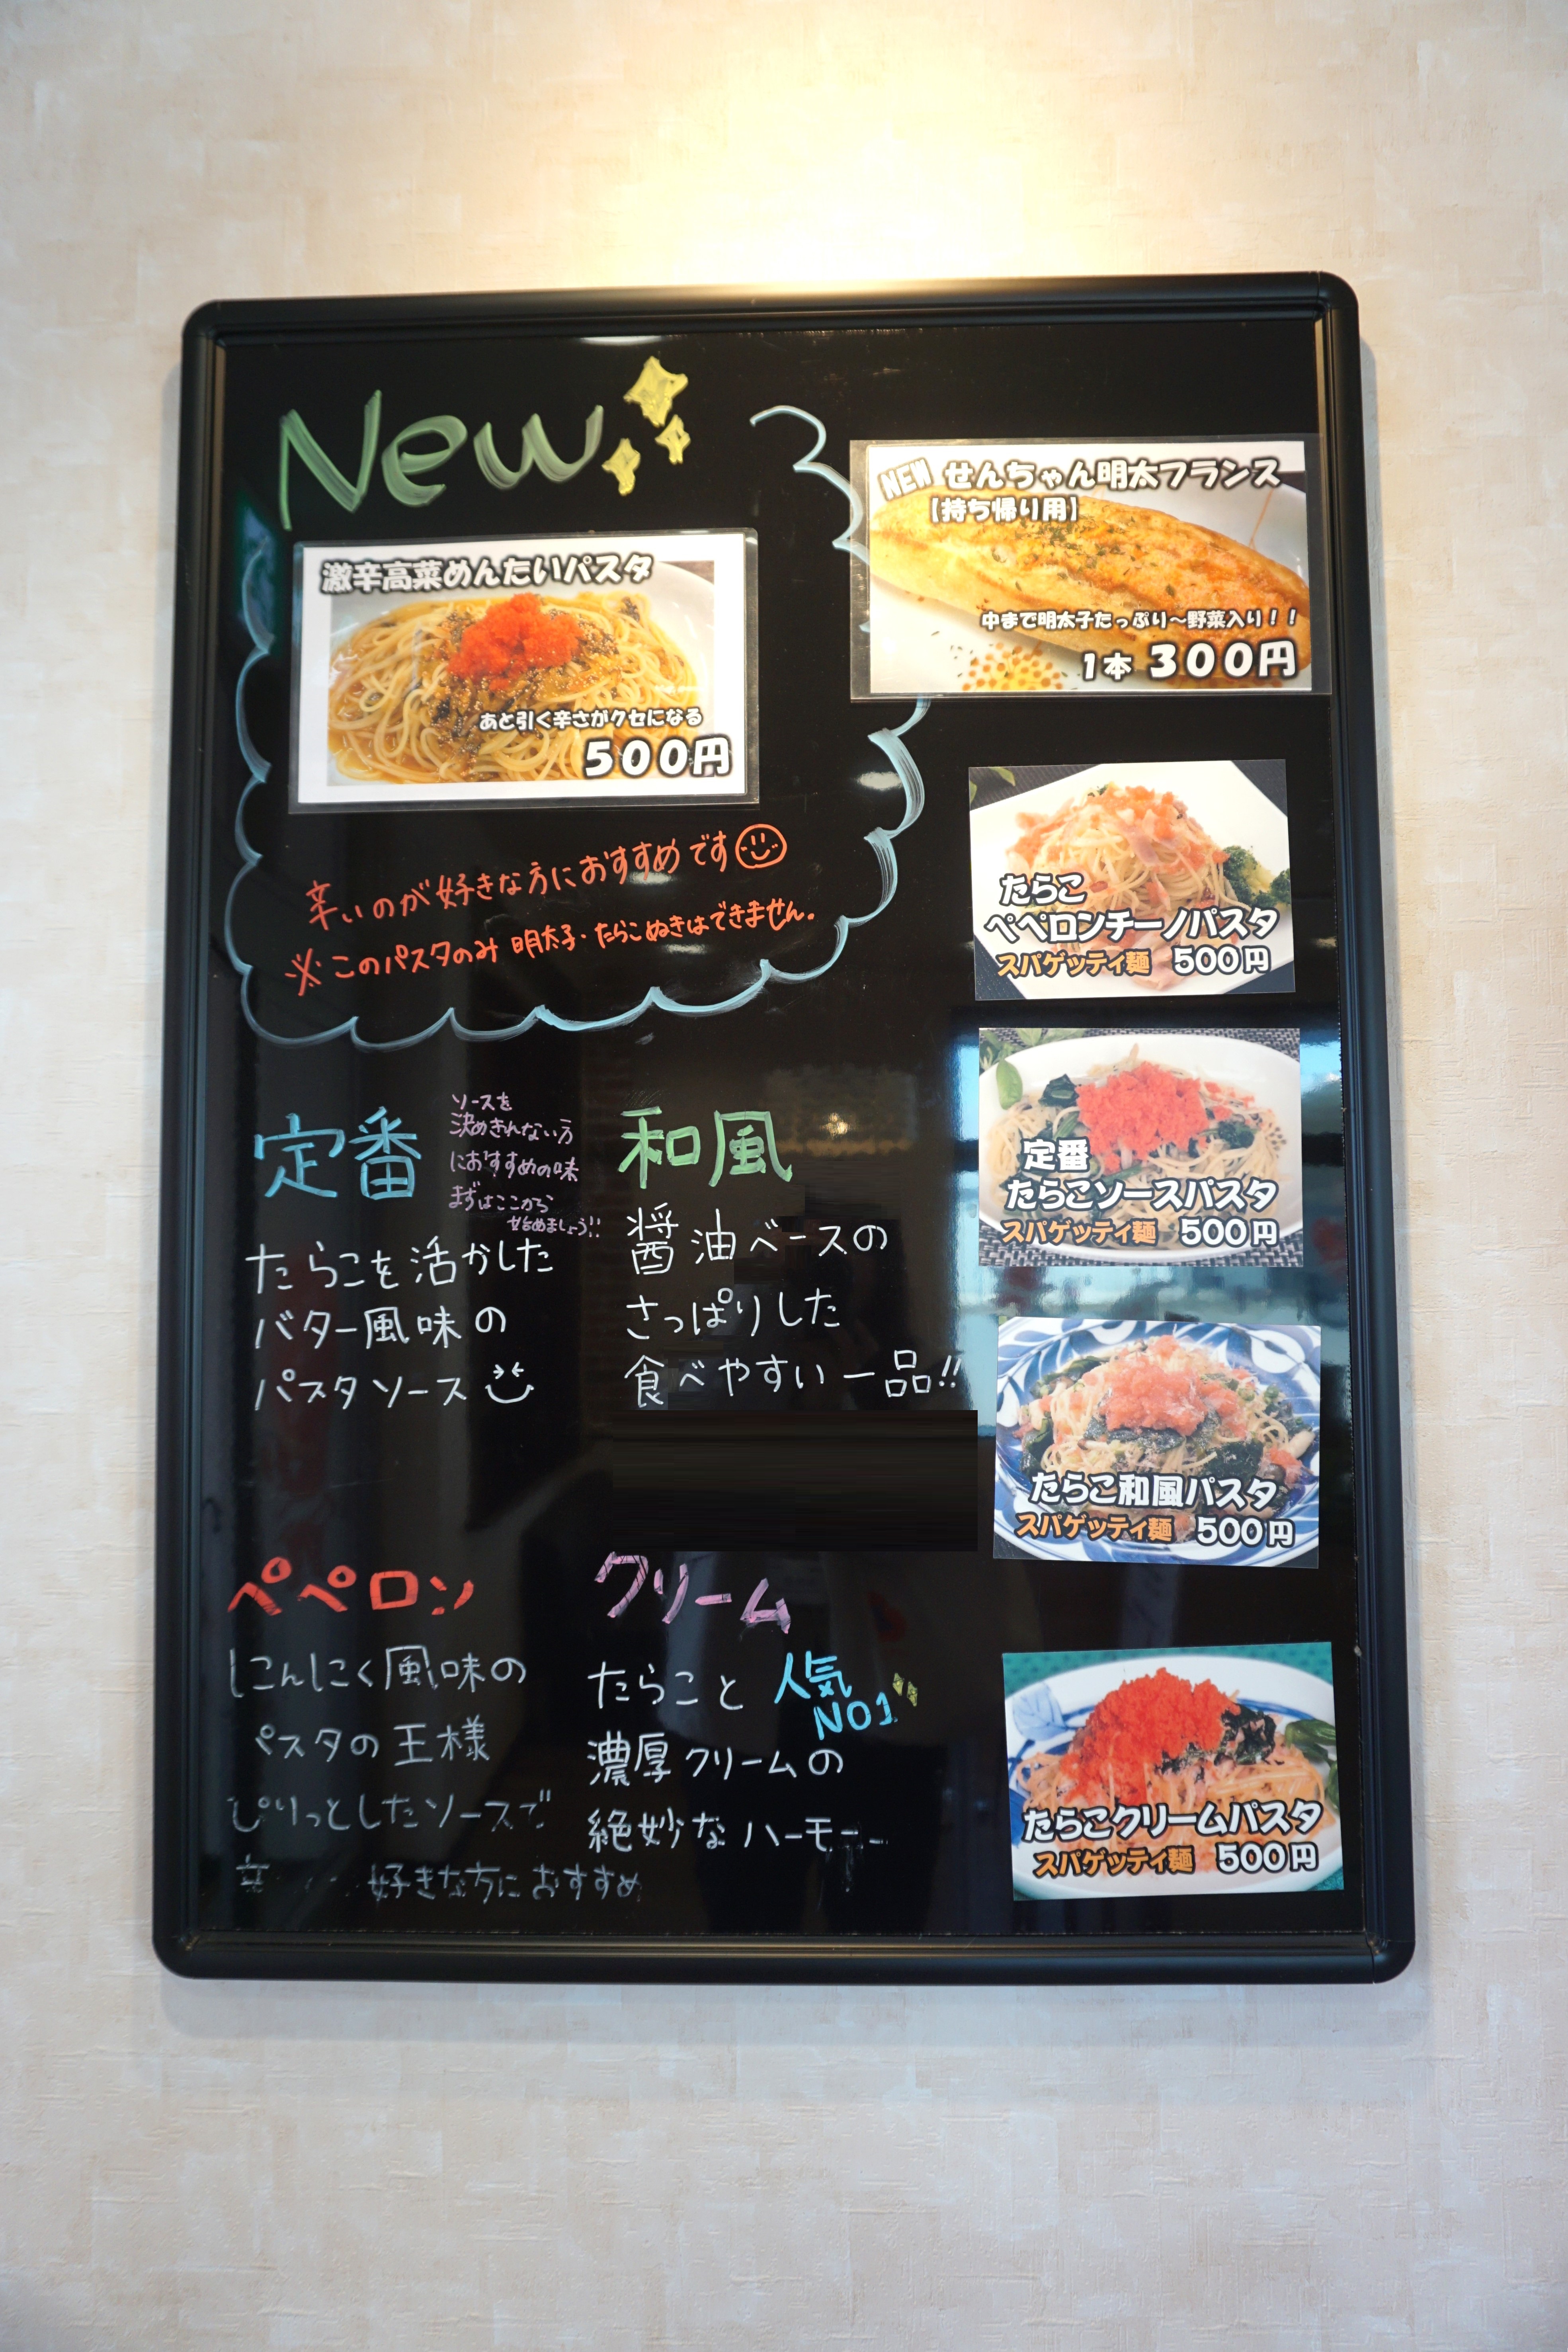 New
激辛高菜めんたいパスタ
あと引く辛さがクセになる
500円
辛いのが好きな方におすすめです
※このパスタのみ 明太子・たらこぬきはできません。
NEW せんちゃん明太フランス
【持ち帰り用】
中まで明太子たっぷり～野菜入り!!
1本 300円
たらこ
ペペロンチーノパスタ
スパゲッティ麺 500円
定番
たらこソースパスタ
スパゲッティ麺 500円
たらこ和風パスタ
スパゲッティ麺 500円
たらこクリームパスタ
スパゲッティ麺 500円
定番
ソースを
決めきれない方
におすすめの味
まずはここから
始めましょう!!
たらこを活かした
バター風味の
パスタソース
和風
醤油ベースの
さっぱりした
食べやすい一品!!
ペペロン
にんにく風味の
パスタの王様
ぴりっとしたソースで
辛 好きな方におすすめ
クリーム
人気
NO1
たらこと
濃厚クリームの
絶妙なハーモニー